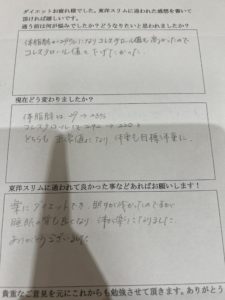 ダイエットお疲れ様でした。東洋スリムに通われた感想を書いて
頂ければ嬉しいです。
通う前は何が悩みでしたか？どうなりたいと思われましたか？
体脂肪が　　　になりコレステロール値も高かったので
コレステロール値を下げたかった。
現在どう変わりましたか？
体脂肪は
コレステロールは　　→ 220
どちらも正常値になり体重も目標体重に。
東洋スリムに通われて良かった事などあればお願いします！
楽にダイエットでき、
睡眠の質も良くなり体が楽になりました。
ありがとうございました
貴重なご意見を元にこれからも勉強させて頂きます。ありがとう